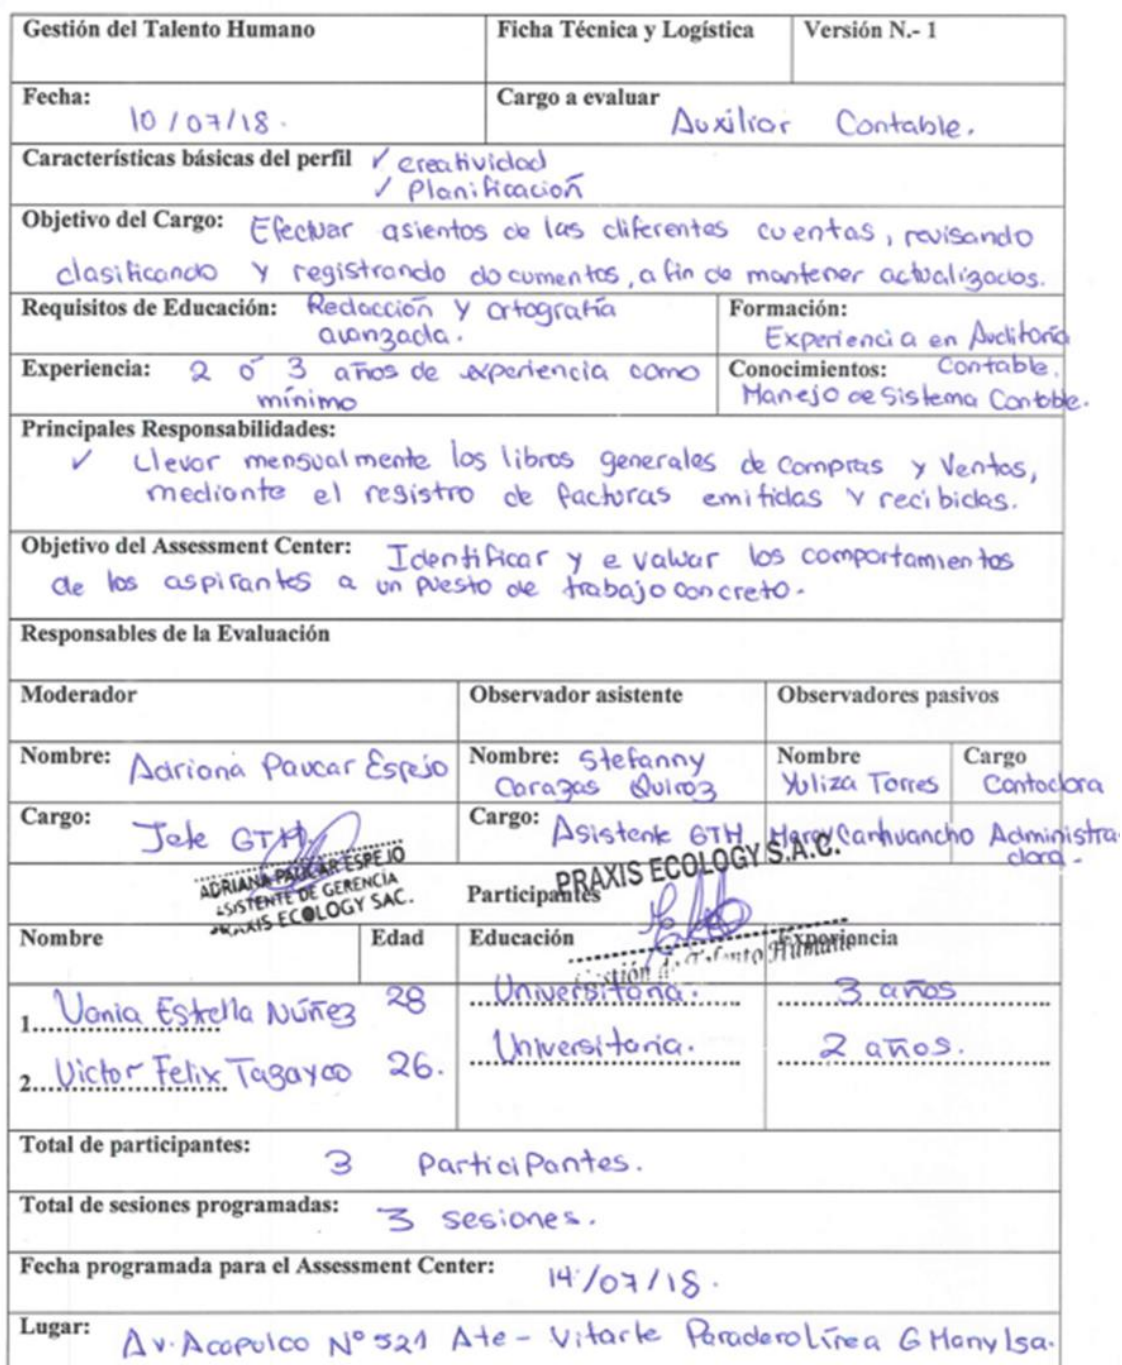 Gestión del Talento Humano Ficha Técnica y Logística Versión N.- 1
Fecha: 10/07/18. Cargo a evaluar Auxiliar Contable.
Características básicas del perfil ✓ creatividad
✓ Planificación
Objetivo del Cargo: Efectuar asientos de las diferentes cuentas, revisando
clasificando y registrando documentos, a fin de mantener actualizados.
Requisitos de Educación: Redacción y ortografía
avanzada.
Formación:
Experiencia en Auditoría
Contable.
Experiencia: 2 ó 3 años de experiencia como
mínimo
Conocimientos:
Manejo de Sistema Contable.
Principales Responsabilidades:
✓ Llevar mensualmente los libros generales de Compras y Ventas,
mediante el registro de facturas emitidas y recibidas.
Objetivo del Assessment Center: Identificar y evaluar los comportamientos
de los aspirantes a un puesto de trabajo concreto.
Responsables de la Evaluación
Moderador Observador asistente Observadores pasivos
Nombre: Adriana Paucar Espejo
Nombre: Stefanny
Carazas Quiroz
Nombre Cargo
Yuliza Torres Contadora
Cargo: Jefe GTH
Cargo: Asistente GTH
Carhuancho Administra-
dora.
ADRIANA PAUCAR ESPEJO
ASISTENTE DE GERENCIA
PRAXIS ECOLOGY SAC.
PRAXIS ECOLOGY S.A.C.
Participantes
Gestión de Talento Humano
Nombre Edad Educación Experiencia
1. Vania Estrella Núñez 28 Universitaria. 3 años
2. Victor Felix Tagayco 26. Universitaria. 2 años.
Total de participantes: 3 Participantes.
Total de sesiones programadas: 3 sesiones.
Fecha programada para el Assessment Center: 14/07/18.
Lugar: Av. Acapulco N° 521 Ate - Vitarte Paradero Línea G Manylsa.